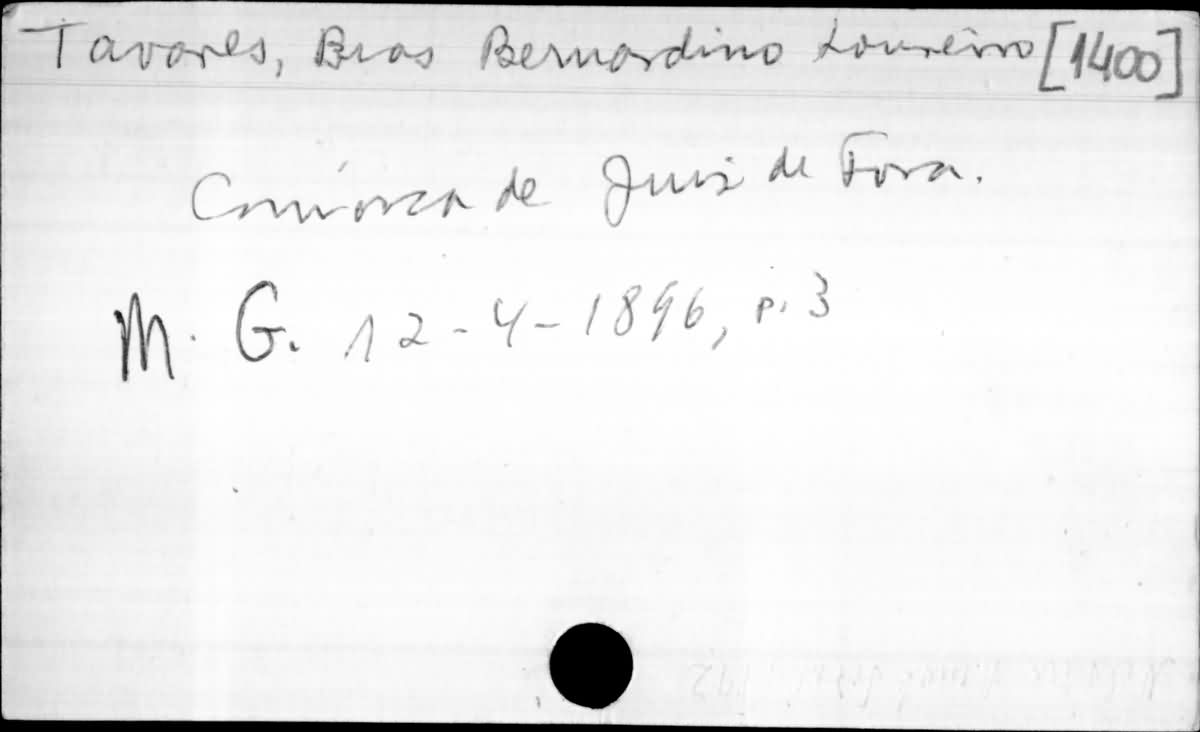 Tavares, Bras Bernardino Loureiro [1400]
Comarca de Juiz de Fora.
M. G. 12-4-1896, p. 3